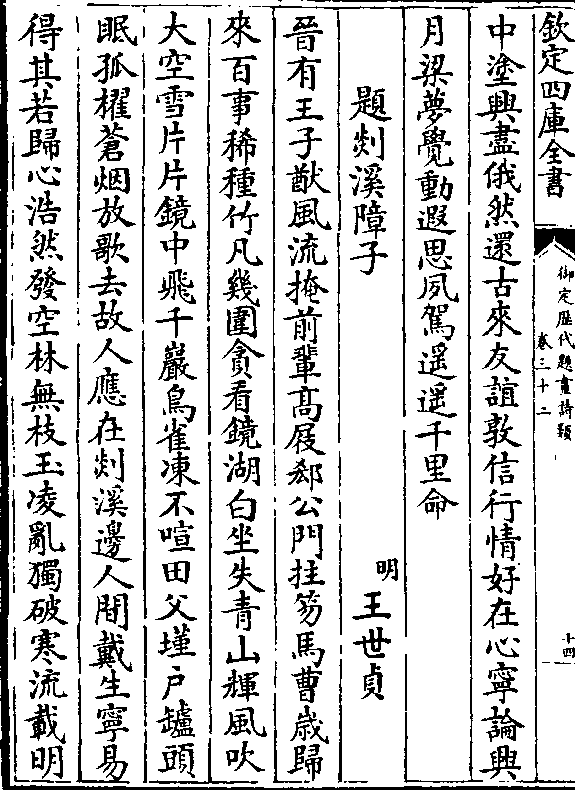 欽定四庫全書
御定歴代題畫詩類
卷三十二
十四
中塗興盡俄然還古來友誼敦信行情好在心寧論興
月梁夢覺動遐思夙駕遥遥千里命
題剡溪障子
明
王世貞
晉有王子猷風流掩前輩髙屐郄公門拄笏馬曹歲歸
來百事稀種竹凡幾圍貪看鏡湖白坐失青山輝風吹
大空雪片片鏡中飛千巖鳥雀凍不喧田父墐戸罏頭
眠孤櫂蒼烟放歌去故人應在剡溪邊人間戴生寧易
得其若歸心浩然發空林無枝玉凌亂獨破寒流載明